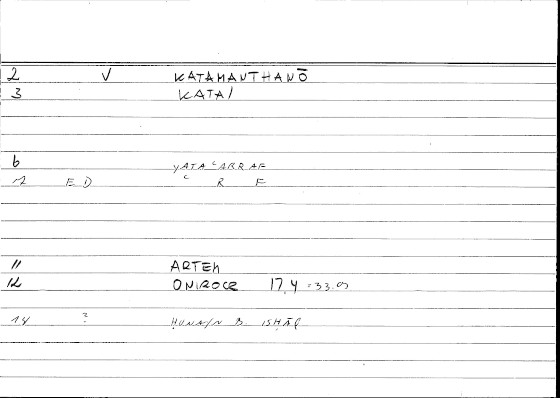 2 V KATAMANTHANŌ
3 KATAI
6 YATAʿARRAF
7 ED ʿ R F
11 ARTEM
12 ONIROCR 17,4 = 33.07
14 ? ḤUNAYN B. ISḤĀQ